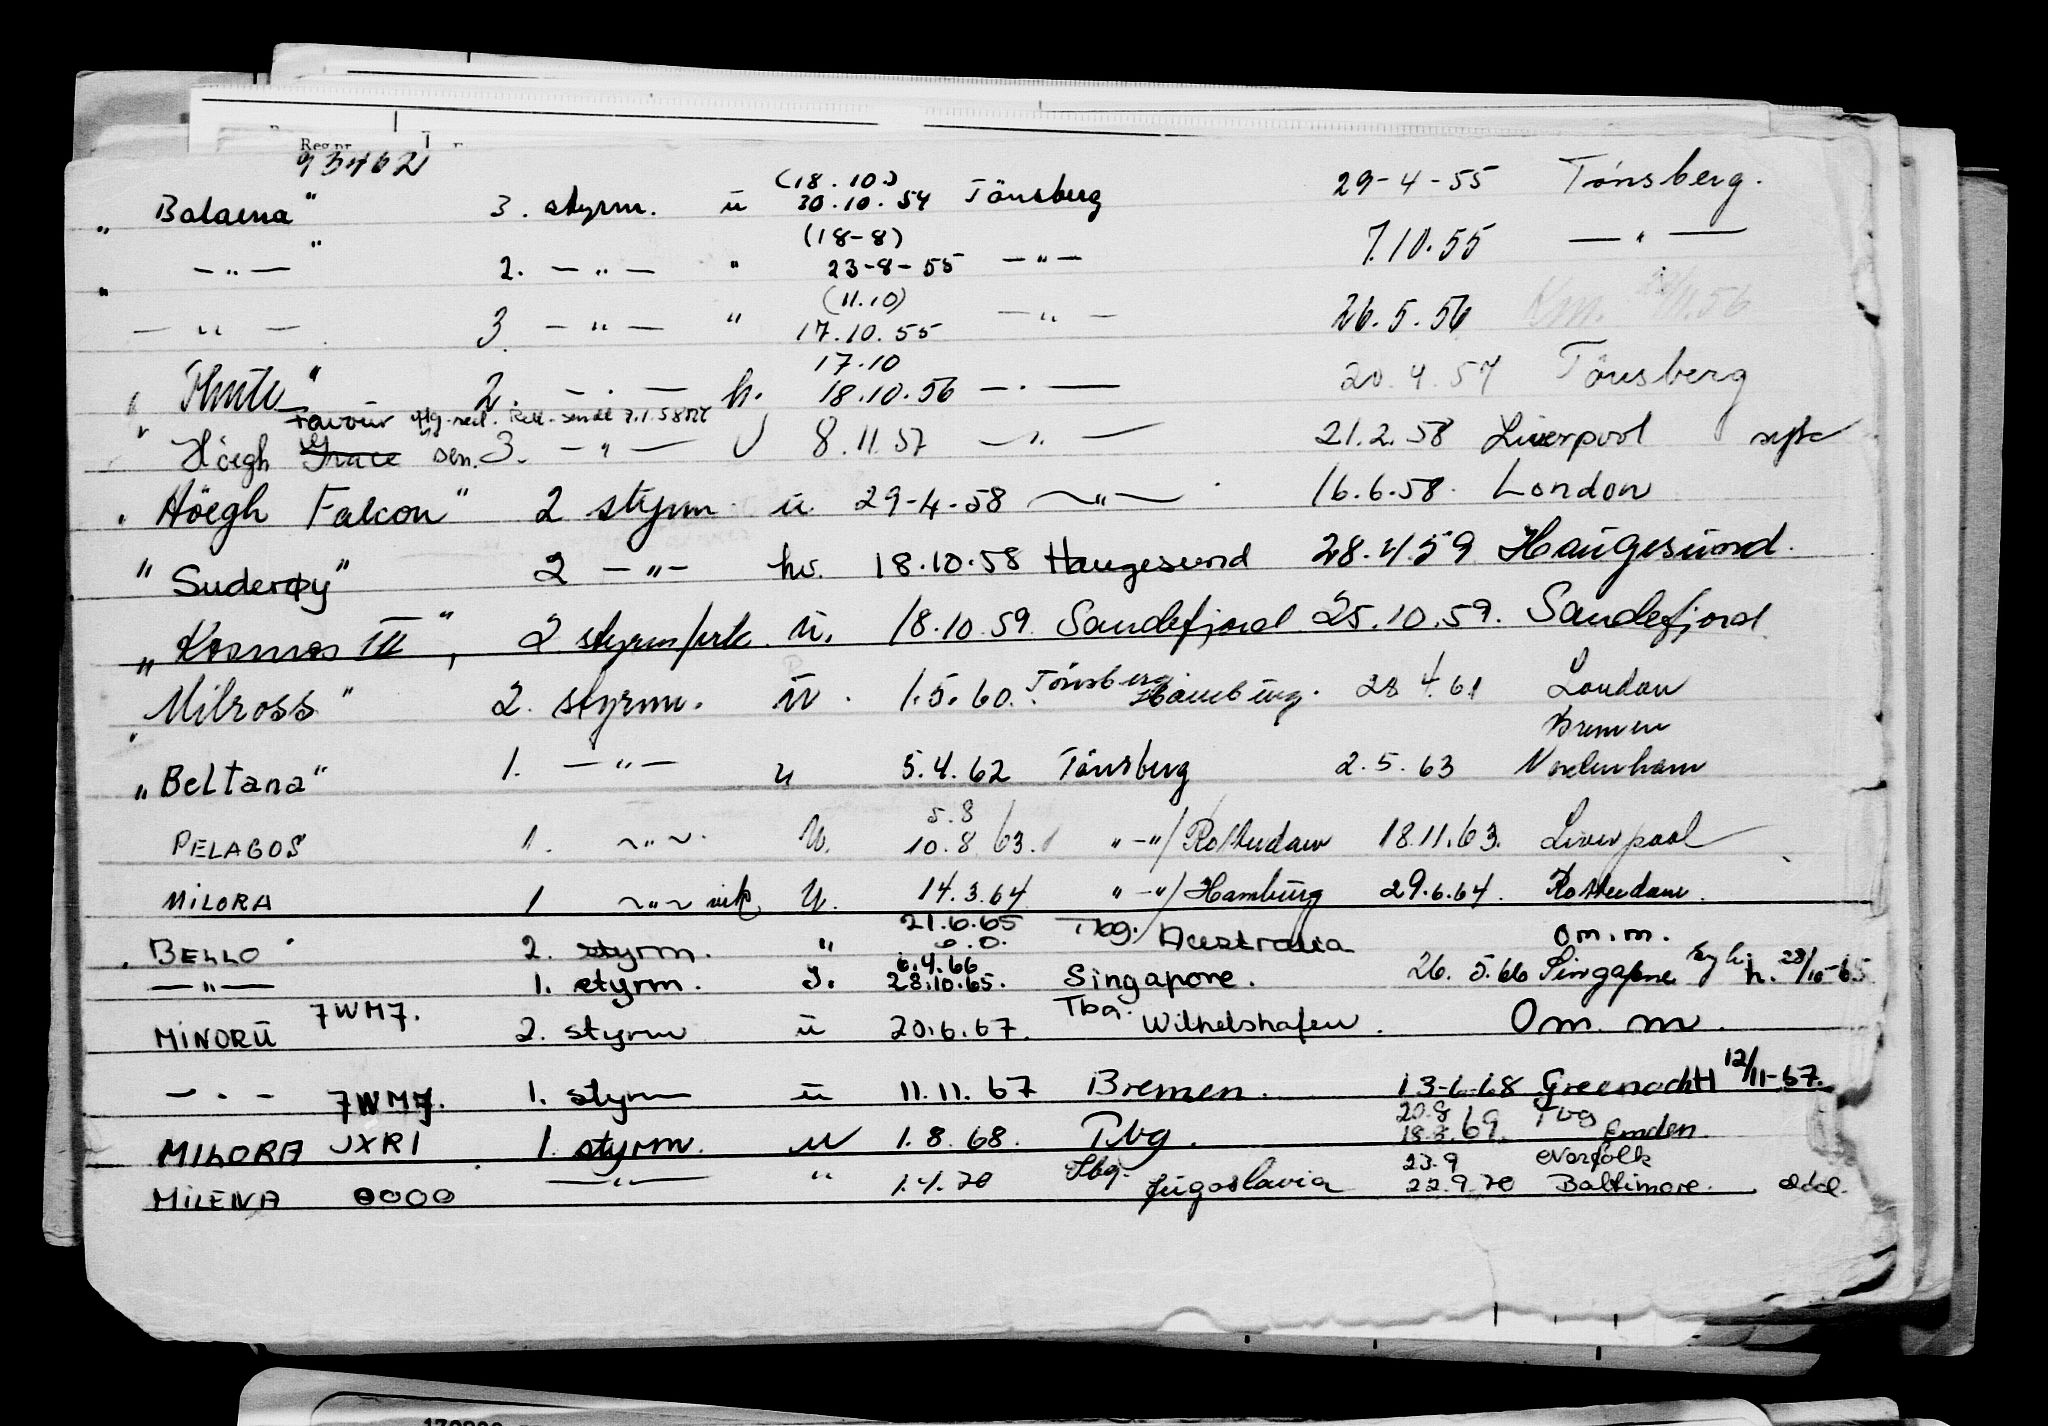 Reg.nr.
93462
" Balaena" 3. styrm. u (18.10.) 30.10.54 Tönsberg 29-4-55 Tönsberg.
" —"— " 2. —"— " (18-8) 23-8-55 —"— 7.10.55 —"—
—"— 3. —"— " (11.10) 17.10.55 —"— 26.5.56
" 2. —"— h. 17.10 18.10.56 —"— 20.4.57 Tönsberg
" Höegh Grace Favour sen. 3. —"— U 8.11.57 —"— 21.2.58 Liverpool syk
" Höegh Falcon" 2 styrm. u 29-4-58 —"— 16.6.58. London
" Suderøy" 2 —"— hv. 18.10.58 Haugesund 28.4.59 Haugesund.
" Kosmos III", 2 styrm/vik. u. 18.10.59 Sandefjord 25.10.59. Sandefjord
" Milross" 2. styrm. u. 1.5.60. Tönsberg Hamburg. 28 4.61 London
Bremen
" Beltana" 1. —"— u 5.4.62 Tönsberg 2.5.63 Nordenham
PELAGOS 1. ~"~ U. 5.8 10.8.63. "-"/Rotterdam 18.11.63. Liverpool
MILORA 1 ~"~ vik U. 14.3.64 "-"/Hamburg 29.6.64. Rotterdam.
" BELLO" 2. styrm. " 21.6.65 Tbg. Australia om.m.
—"— 1. styrm. 6.4.66 28.10.65. Singapore. 26.5.66 Singapore h. 28/10-65
MINORU 7WM7. 2. styrm u 20.6.67. Tbg. Wilhelshafen. Om. m.
—"— 7WM7. 1. styrm u 11.11.67 Bremen. 13-6-68 Greenock H 12/11-67.
MILORA JXRI 1 styrm. u 1.8.68. Tbg. 20.8 18.8.69. Tbg Emden.
MILENA 0000 —"— " 1.4.70 Tbg. Jugoslavia 23.9 22.9.70 Norfolk Baltimore.